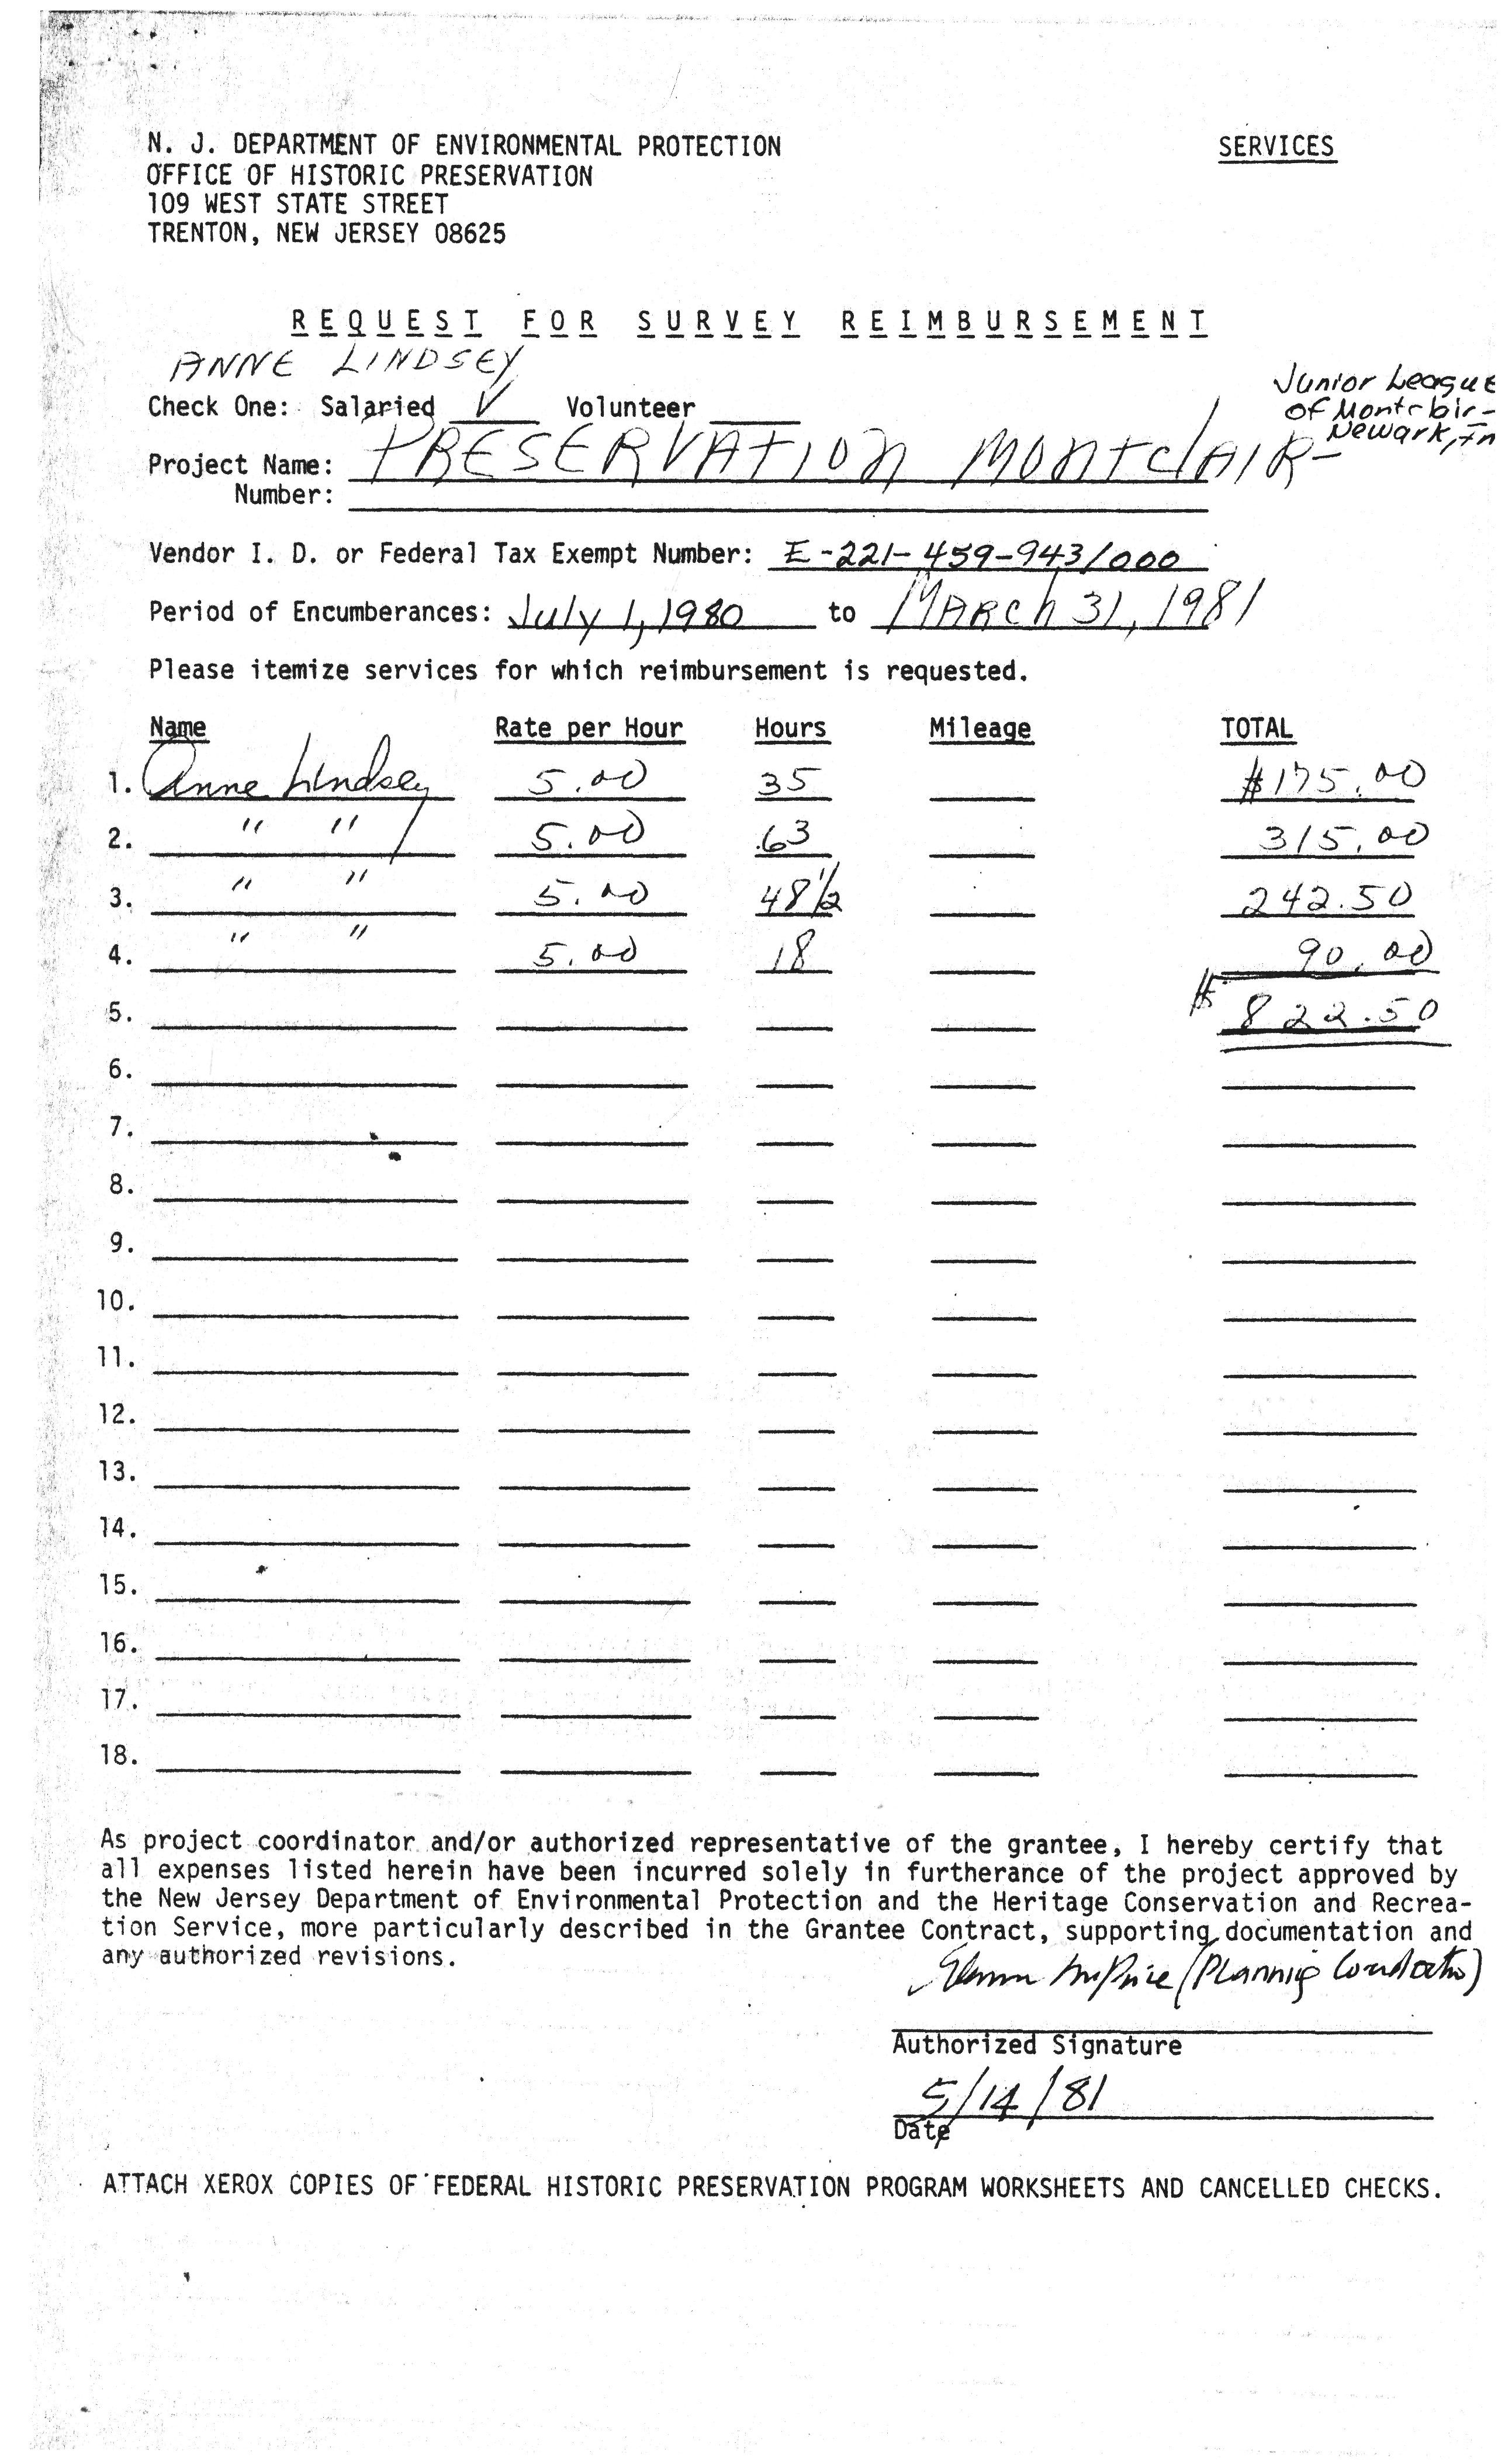 N. J. DEPARTMENT OF ENVIRONMENTAL PROTECTION SERVICES
OFFICE OF HISTORIC PRESERVATION
109 WEST STATE STREET
TRENTON, NEW JERSEY 08625
REQUEST FOR SURVEY REIMBURSEMENT
ANNE LINDSEY
Junior League
of Montclair-
Newark, In
Check One: Salaried ✓ Volunteer
Project Name: PRESERVATION MONTCLAIR-
Number:
Vendor I. D. or Federal Tax Exempt Number: E-221-459-943/000
Period of Encumberances: July 1, 1980 to MARCH 31, 1981
Please itemize services for which reimbursement is requested.
Name Rate per Hour Hours Mileage TOTAL
1. Anne Lindsey 5.00 35 $175.00
2. " " 5.00 63 315.00
3. " " 5.00 48 1/2 242.50
4. " " 5.00 18 90.00
5. $ 822.50
6.
7.
8.
9.
10.
11.
12.
13.
14.
15.
16.
17.
18.
As project coordinator and/or authorized representative of the grantee, I hereby certify that
all expenses listed herein have been incurred solely in furtherance of the project approved by
the New Jersey Department of Environmental Protection and the Heritage Conservation and Recrea-
tion Service, more particularly described in the Grantee Contract, supporting documentation and
any authorized revisions.
(Planning
Authorized Signature
5/14/81
Date
ATTACH XEROX COPIES OF FEDERAL HISTORIC PRESERVATION PROGRAM WORKSHEETS AND CANCELLED CHECKS.